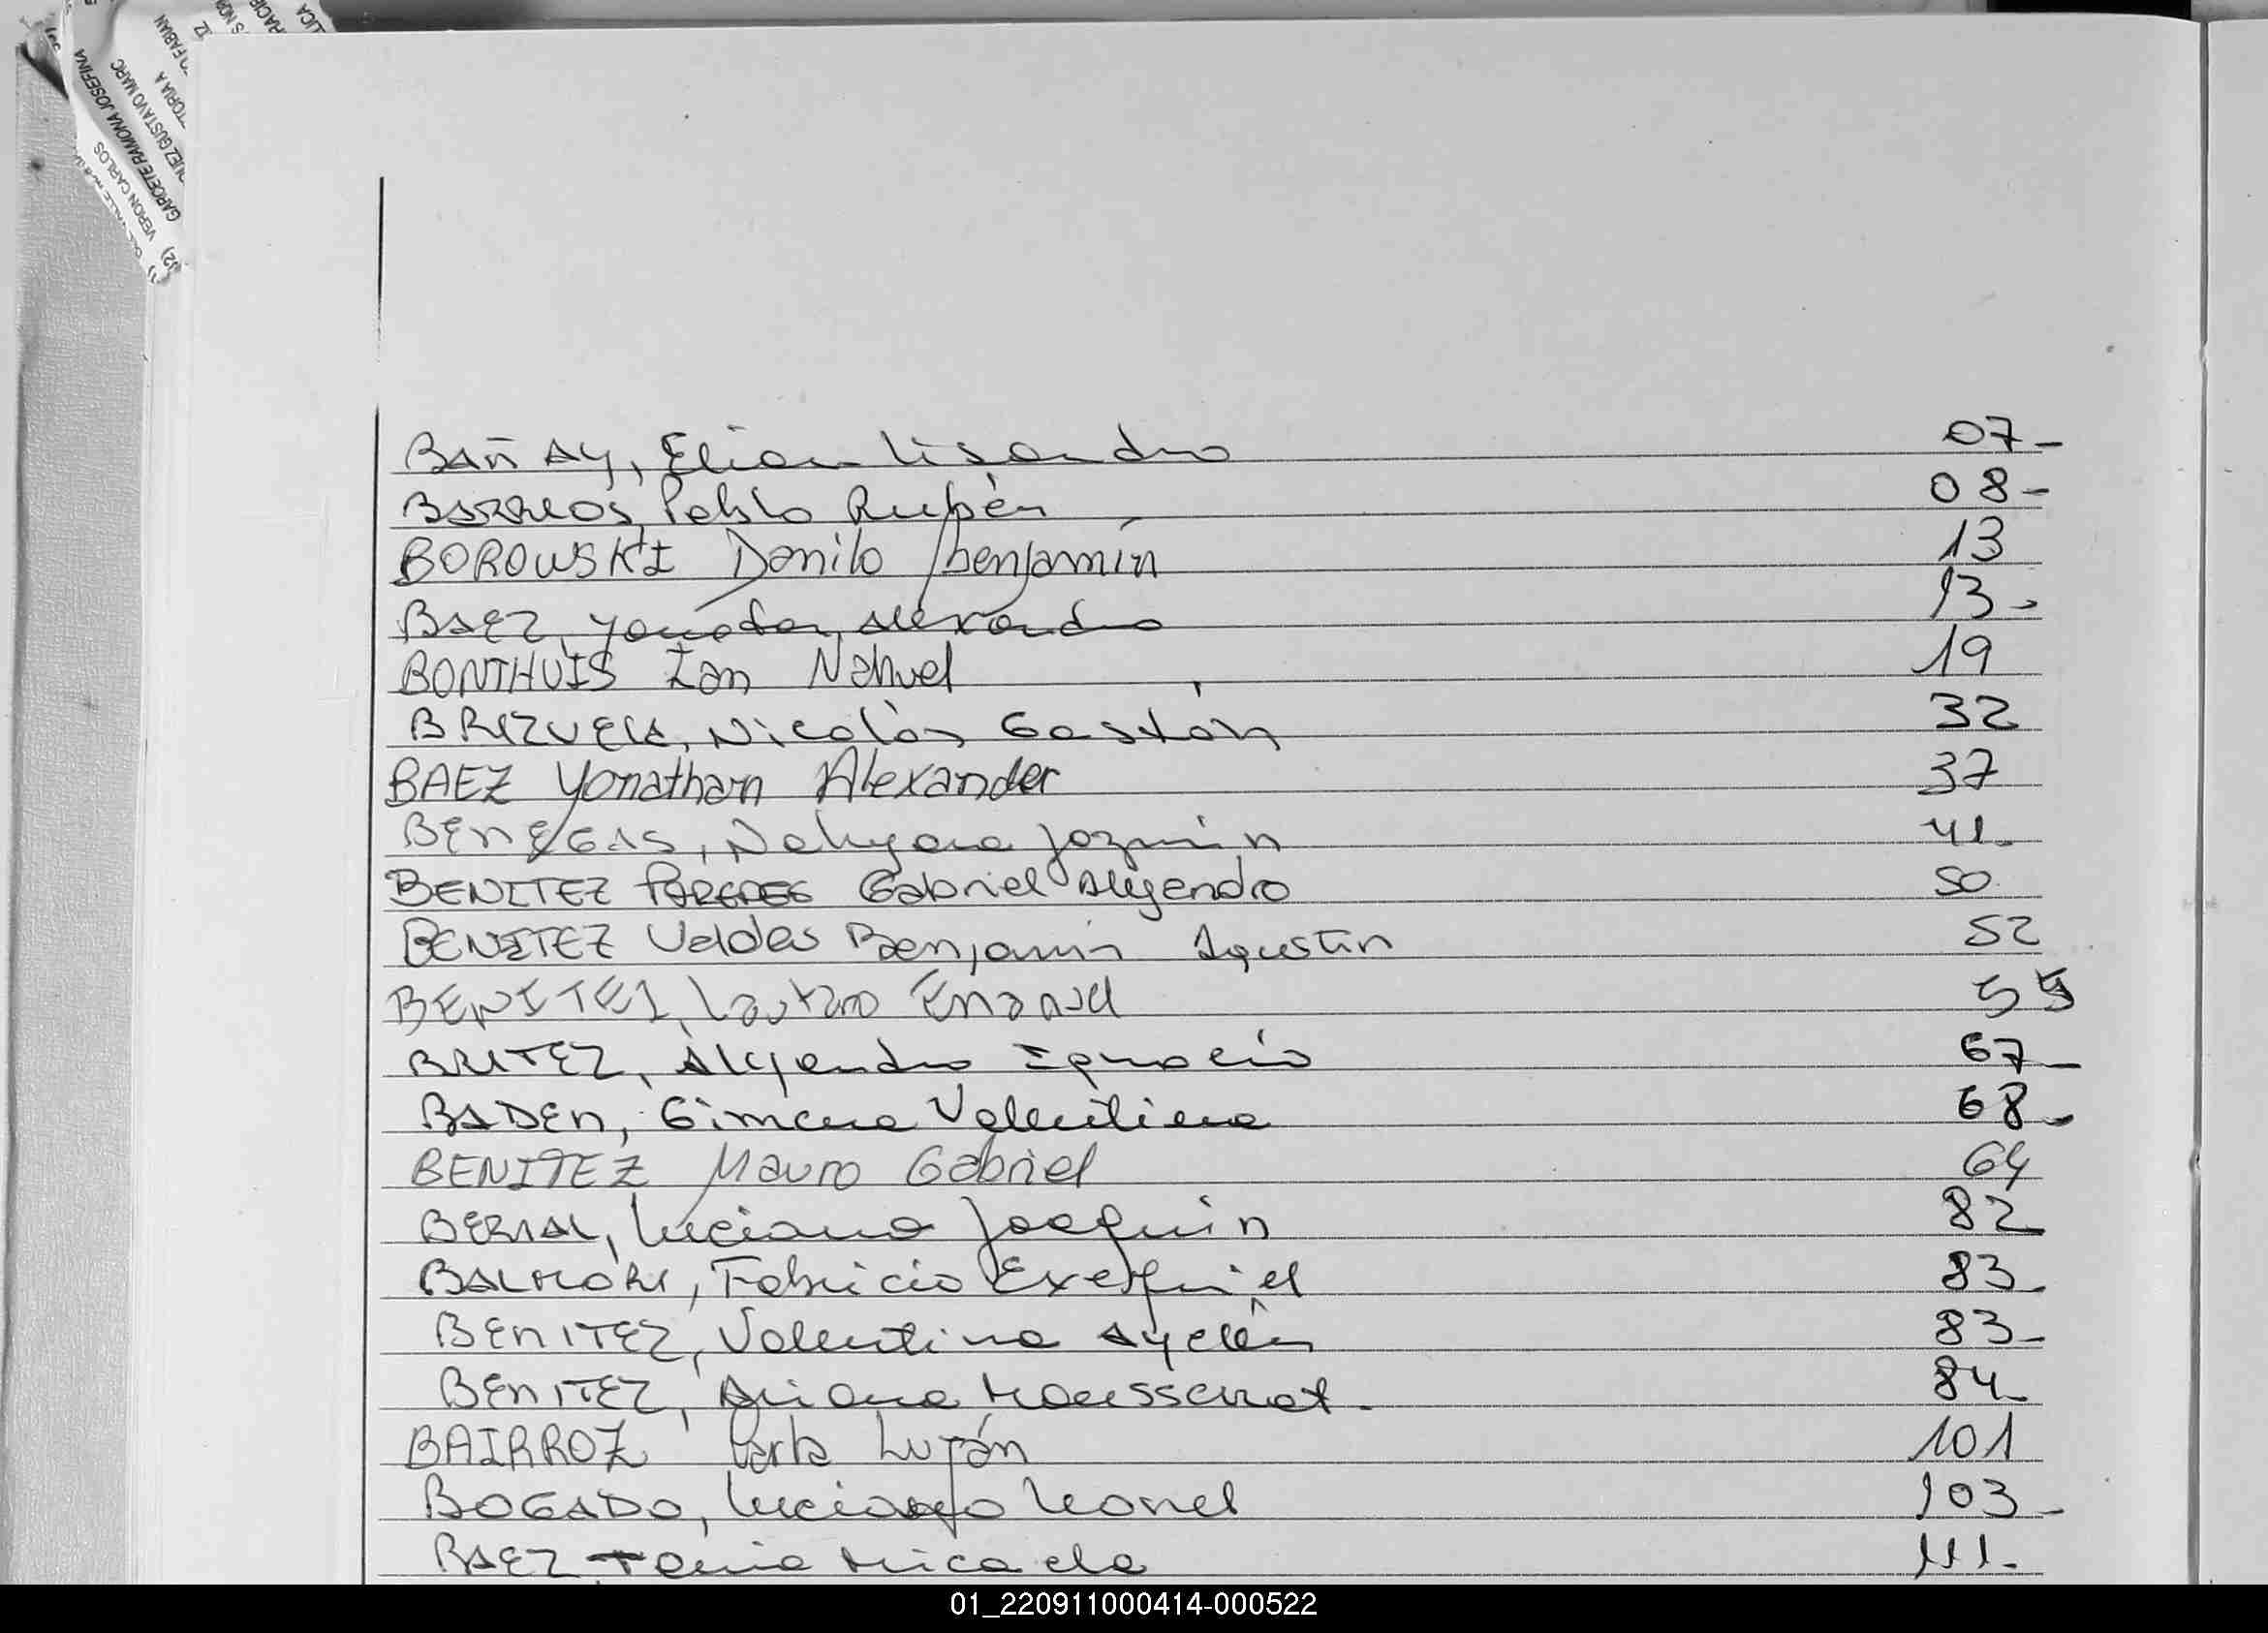 VERON CARLOS
GARCETE RAMONA JOSEFINA
GUSTAVO MARC
TORIA A
FABIAN
BAÑAY, Elian Lisandro 07-
BARRIOS, Pablo Rubén 08-
BOROWSKI Danilo Benjamín 13
BAEZ, Yonatan, Alexandro 13-
BONTHUIS Ian Nahuel 19
BRIZUELA, Nicolás Gastón 32
BAEZ Yonathan Alexander 37
BENEGAS, Nahyara Jazmin 41-
BENITEZ PAREDES Gabriel Alejandro 50
BENITEZ Valdes Benjamin Agustin 52
BENITEZ, Lautaro Emanuel 55
BRITEZ, Alejandro Ignacio 67-
BADEN, Gimena Valentina 68-
BENITEZ Mauro Gabriel 64
BERNAL, Luciano Joaquin 82
BALMORI, Fabricio Exequiel 83-
BENITEZ, Valentina Ayelén 83-
BENITEZ, Ariana Monsserrat. 84-
BAIRROZ Carla Luján 101
BOGADO, Luciano Leonel 103-
BAEZ, Tania Micaela 111-
01_220911000414-000522